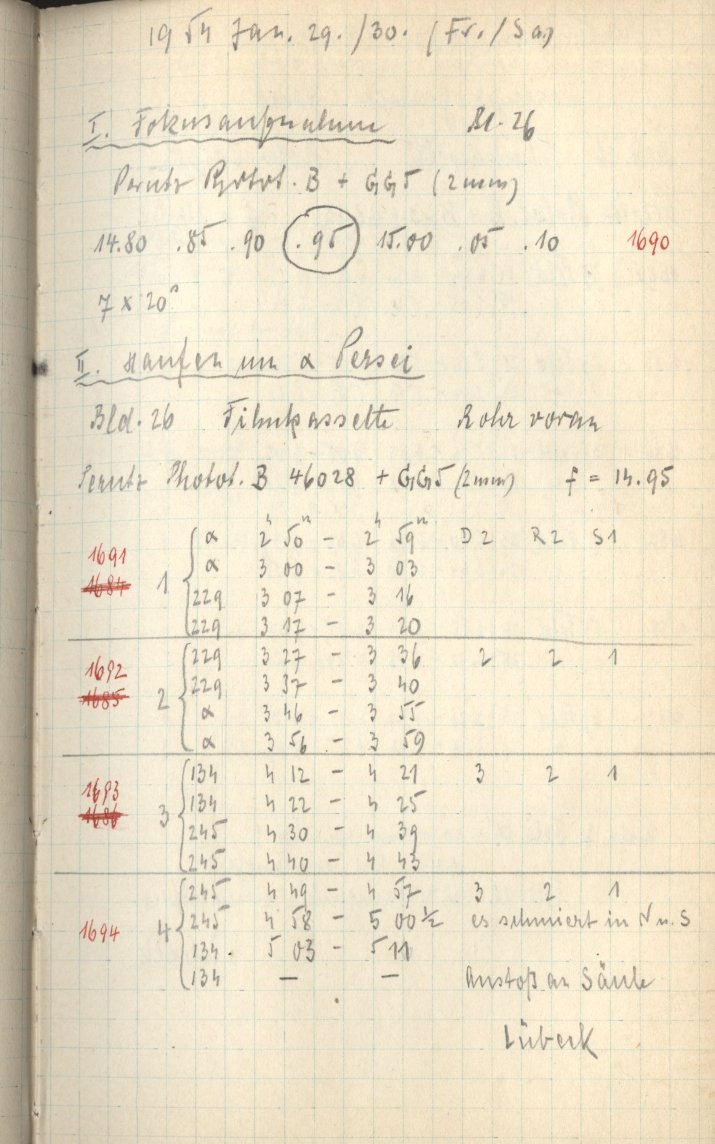 1954 Jan. 29./30. (Fr./Sa)
I. Fokusaufnahme Bl. 26
Perutz Photot. B + GG5 (2mm)
14.80 .85 .90 .95 15.00 .05 .10 1690
7 x 20ˢ
II. Haufen um α Persei
Bld. 26 Filmkassette Rohr voran
Perutz Photot. B 46028 + GG5 (2mm) f = 14.95
α 2ʰ 50ᵐ - 2ʰ 59ᵐ D2 R2 S1
1691 α 3 00 - 3 03
1684 1 229 3 07 - 3 16
229 3 17 - 3 20
229 3 27 - 3 36 2 2 1
1692 229 3 37 - 3 40
1685 2 α 3 46 - 3 55
α 3 56 - 3 59
134 4 12 - 4 21 3 2 1
1693 134 4 22 - 4 25
1686 3 245 4 30 - 4 39
245 4 40 - 4 43
245 4 49 - 4 57 3 2 1
1694 4 245 4 58 - 5 00½ es schmiert in N u. S
134. 5 03 - 5 11
134 — — Anstoß an Säule
Lübeck